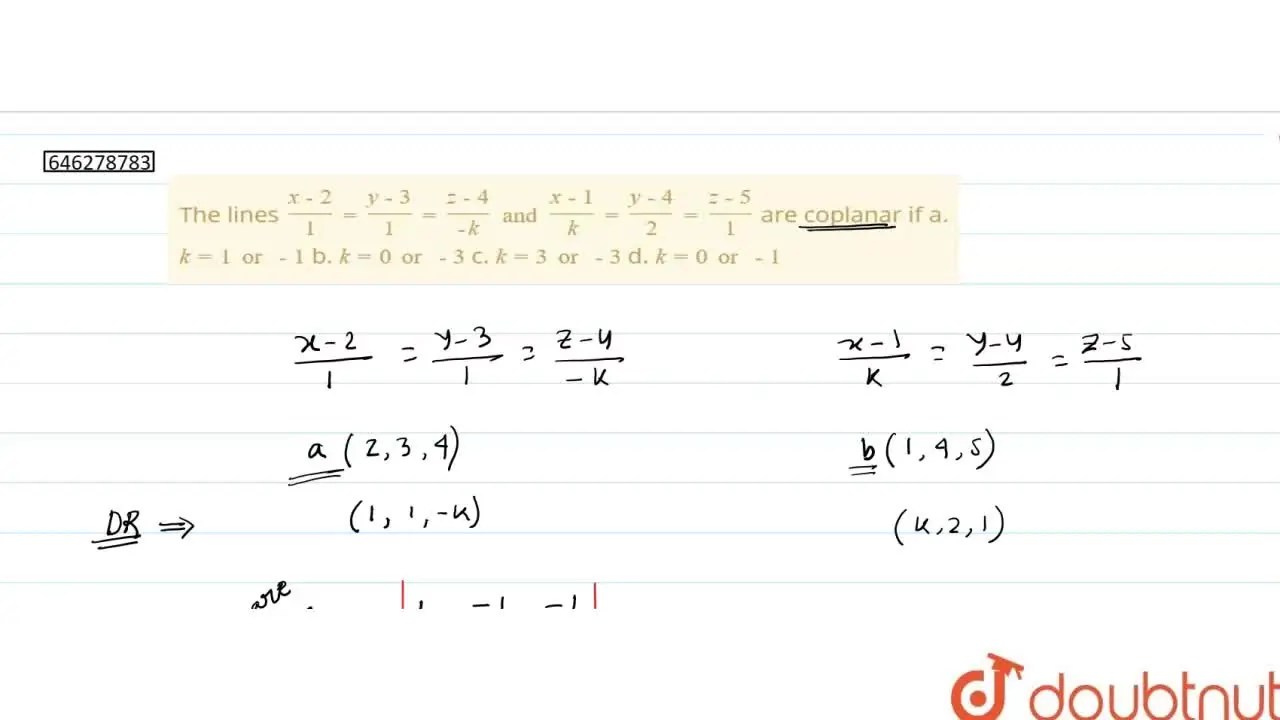 646278783
The lines \frac{x - 2}{1} = \frac{y - 3}{1} = \frac{z - 4}{-k} and \frac{x - 1}{k} = \frac{y - 4}{2} = \frac{z - 5}{1} are coplanar if a.
k = 1 or - 1 b. k = 0 or - 3 c. k = 3 or - 3 d. k = 0 or - 1
\frac{x-2}{1} = \frac{y-3}{1} = \frac{z-4}{-k} \frac{x-1}{k} = \frac{y-4}{2} = \frac{z-5}{1}
a (2,3,4) b (1,4,5)
DR ⇒ (1, 1, -k) (k,2,1)
are | 1 -1 -1 |
doubtnut